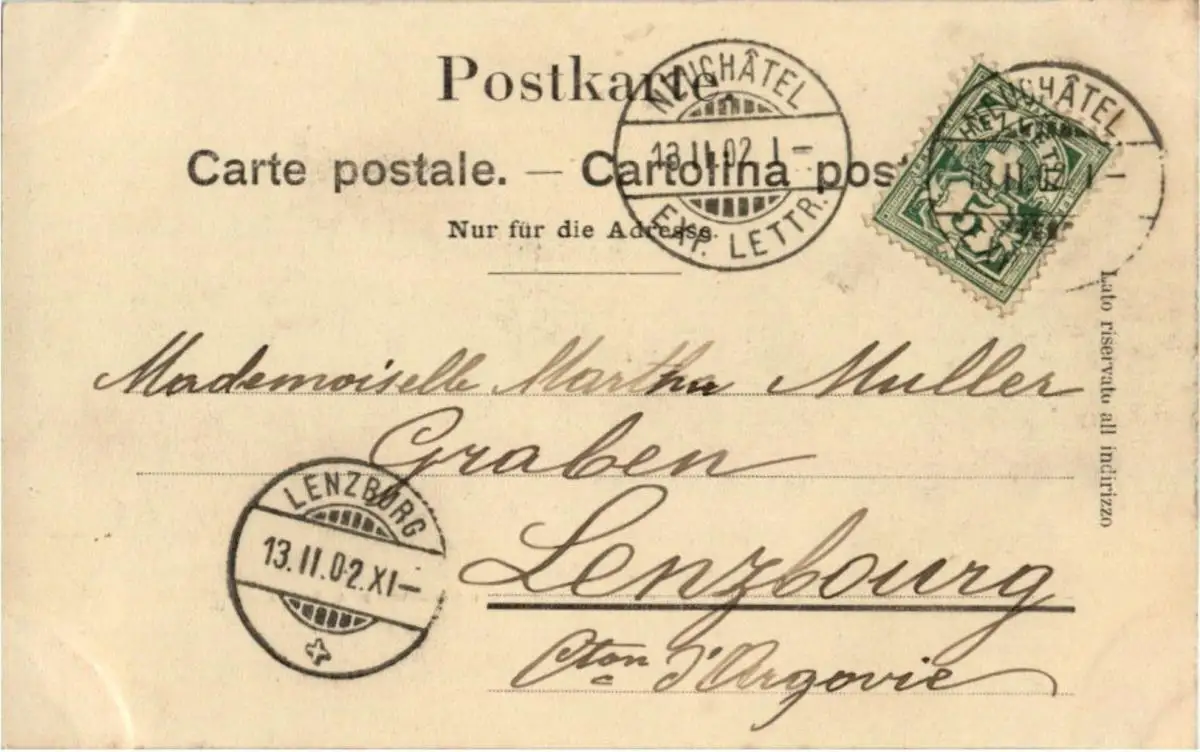 Postkarte.
Carte postale. — Cartolina pos
Nur für die Adresse.
NEUCHÂTEL
13.II.02 I–
EXP. LETTR.
NEUCHÂTEL
13.II.02 I–
5
Lato riservato all indirizzo
Mademoiselle Martha Muller
Graben
Lenzbourg
Cton d'Argovie
LENZBURG
13.II.02.XI–